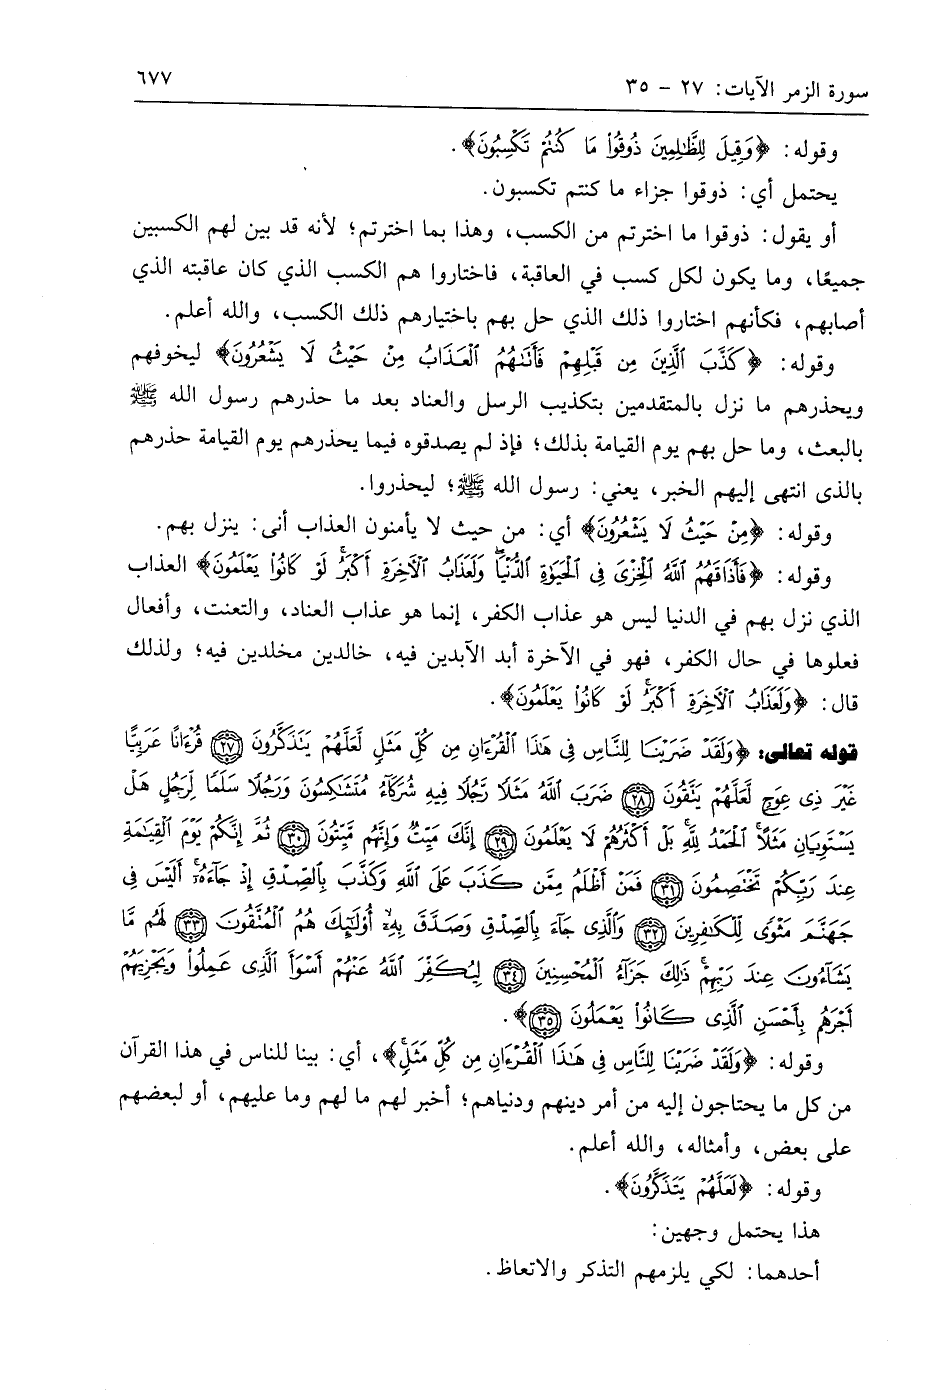 سورة الزمر الآيات: ٢٧ - ٣٥
٦٧٧
وقوله: ﴿وَقِيلَ لِلظَّٰلِمِينَ ذُوقُوا۟ مَا كُنتُمْ تَكْسِبُونَ﴾.
يحتمل أي: ذوقوا جزاء ما كنتم تكسبون.
أو يقول: ذوقوا ما اخترتم من الكسب، وهذا بما اخترتم؛ لأنه قد بين لهم الكسبين
جميعًا، وما يكون لكل كسب في العاقبة، فاختاروا هم الكسب الذي كان عاقبته الذي
أصابهم، فكأنهم اختاروا ذلك الذي حل بهم باختيارهم ذلك الكسب، والله أعلم.
وقوله: ﴿كَذَّبَ ٱلَّذِينَ مِن قَبْلِهِمْ فَأَتَىٰهُمُ ٱلْعَذَابُ مِنْ حَيْثُ لَا يَشْعُرُونَ﴾ ليخوفهم
ويحذرهم ما نزل بالمتقدمين بتكذيب الرسل والعناد بعد ما حذرهم رسول الله ﷺ
بالبعث، وما حل بهم يوم القيامة بذلك؛ فإذ لم يصدقوه فيما يحذرهم يوم القيامة حذرهم
بالذى انتهى إليهم الخبر، يعني: رسول الله ﷺ؛ ليحذروا.
وقوله: ﴿مِنْ حَيْثُ لَا يَشْعُرُونَ﴾ أي: من حيث لا يأمنون العذاب أنى: ينزل بهم.
وقوله: ﴿فَأَذَاقَهُمُ ٱللَّهُ ٱلْخِزْىَ فِى ٱلْحَيَوٰةِ ٱلدُّنْيَا ۖ وَلَعَذَابُ ٱلْـَٔاخِرَةِ أَكْبَرُ ۚ لَوْ كَانُوا۟ يَعْلَمُونَ﴾ العذاب
الذي نزل بهم في الدنيا ليس هو عذاب الكفر، إنما هو عذاب العناد، والتعنت، وأفعال
فعلوها في حال الكفر، فهو في الآخرة أبد الآبدين فيه، خالدين مخلدين فيه؛ ولذلك
قال: ﴿وَلَعَذَابُ ٱلْـَٔاخِرَةِ أَكْبَرُ ۚ لَوْ كَانُوا۟ يَعْلَمُونَ﴾.
قوله تعالى: ﴿وَلَقَدْ ضَرَبْنَا لِلنَّاسِ فِى هَٰذَا ٱلْقُرْءَانِ مِن كُلِّ مَثَلٍ لَّعَلَّهُمْ يَتَذَكَّرُونَ ﴿٢٧﴾ قُرْءَانًا عَرَبِيًّا
غَيْرَ ذِى عِوَجٍ لَّعَلَّهُمْ يَتَّقُونَ ﴿٢٨﴾ ضَرَبَ ٱللَّهُ مَثَلًا رَّجُلًا فِيهِ شُرَكَآءُ مُتَشَٰكِسُونَ وَرَجُلًا سَلَمًا لِّرَجُلٍ هَلْ
يَسْتَوِيَانِ مَثَلًا ۚ ٱلْحَمْدُ لِلَّهِ ۚ بَلْ أَكْثَرُهُمْ لَا يَعْلَمُونَ ﴿٢٩﴾ إِنَّكَ مَيِّتٌ وَإِنَّهُم مَّيِّتُونَ ﴿٣٠﴾ ثُمَّ إِنَّكُمْ يَوْمَ ٱلْقِيَٰمَةِ
عِندَ رَبِّكُمْ تَخْتَصِمُونَ ﴿٣١﴾ فَمَنْ أَظْلَمُ مِمَّن كَذَبَ عَلَى ٱللَّهِ وَكَذَّبَ بِٱلصِّدْقِ إِذْ جَآءَهُۥٓ ۚ أَلَيْسَ فِى
جَهَنَّمَ مَثْوًى لِّلْكَٰفِرِينَ ﴿٣٢﴾ وَٱلَّذِى جَآءَ بِٱلصِّدْقِ وَصَدَّقَ بِهِۦٓ ۙ أُو۟لَٰٓئِكَ هُمُ ٱلْمُتَّقُونَ ﴿٣٣﴾ لَهُم مَّا
يَشَآءُونَ عِندَ رَبِّهِمْ ۚ ذَٰلِكَ جَزَآءُ ٱلْمُحْسِنِينَ ﴿٣٤﴾ لِيُكَفِّرَ ٱللَّهُ عَنْهُمْ أَسْوَأَ ٱلَّذِى عَمِلُوا۟ وَيَجْزِيَهُمْ
أَجْرَهُم بِأَحْسَنِ ٱلَّذِى كَانُوا۟ يَعْمَلُونَ ﴿٣٥﴾﴾.
وقوله: ﴿وَلَقَدْ ضَرَبْنَا لِلنَّاسِ فِى هَٰذَا ٱلْقُرْءَانِ مِن كُلِّ مَثَلٍ ۚ﴾، أي: بينا للناس في هذا القرآن
من كل ما يحتاجون إليه من أمر دينهم ودنياهم؛ أخبر لهم ما لهم وما عليهم، أو لبعضهم
على بعض، وأمثاله، والله أعلم.
وقوله: ﴿لَعَلَّهُمْ يَتَذَكَّرُونَ﴾.
هذا يحتمل وجهين:
أحدهما: لكي يلزمهم التذكر والاتعاظ.